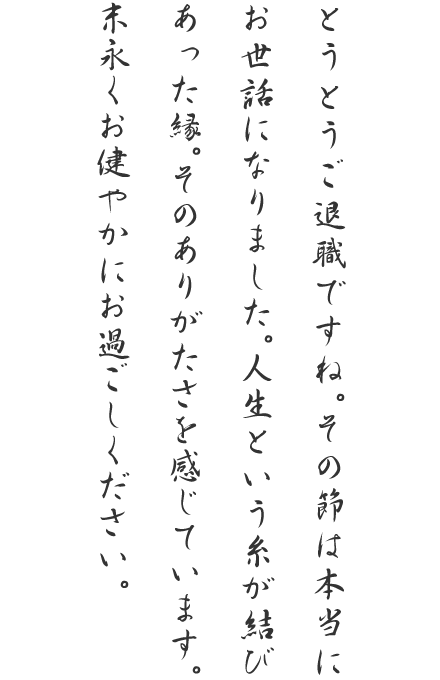 とうとうご退職ですね。その節は本当に
お世話になりました。人生という糸が結び
あった縁。そのありがたさを感じています。
末永くお健やかにお過ごしください。